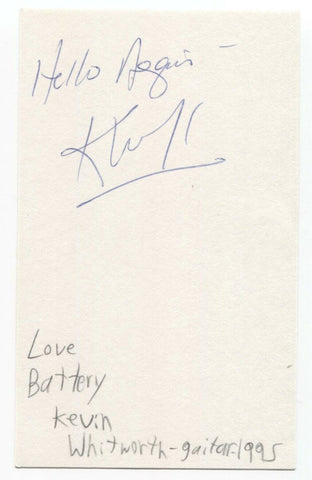 Hello Again –
Love
Battery
Kevin
Whitworth-guitar-1995